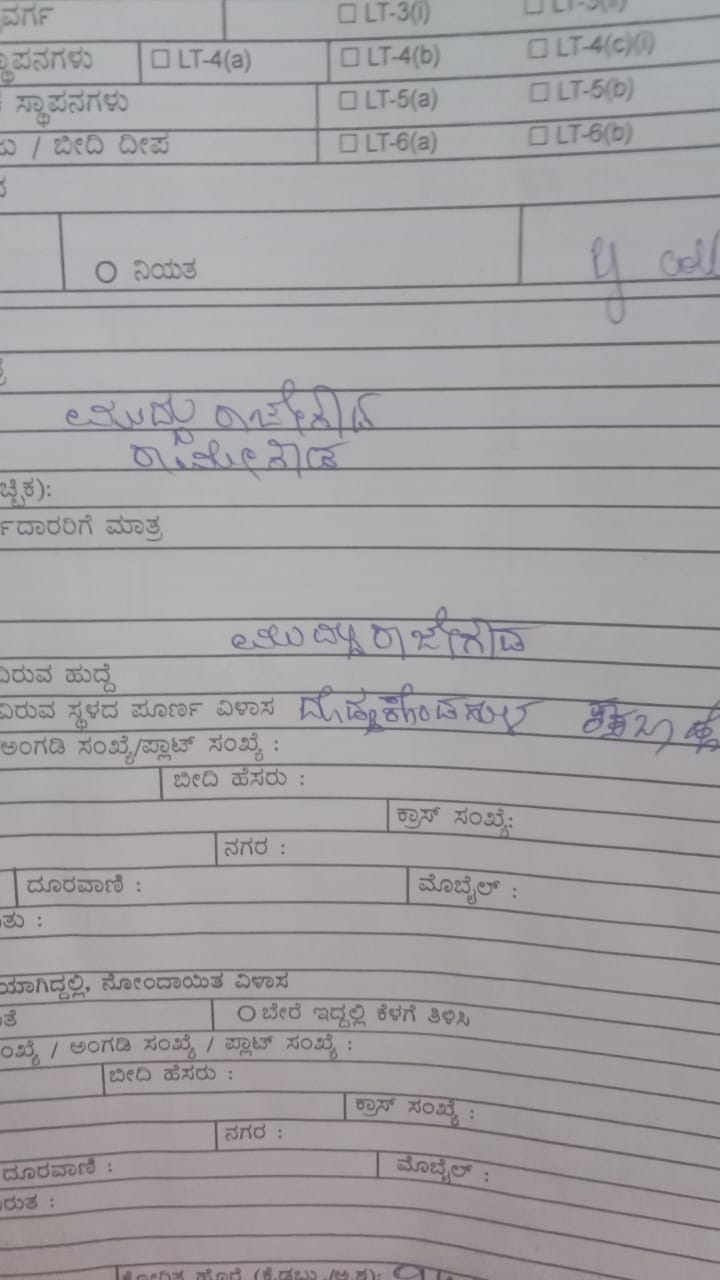 ವರ್ಗ LT-3(i)
ಸ್ಥಾಪನಗಳು LT-4(a) LT-4(b) LT-4(c)(i)
ಸ್ಥಾಪನಗಳು LT-5(a) LT-5(b)
/ ಬೀದಿ ದೀಪ LT-6(a) LT-6(b)
ನಿಯತ
ಮುದ್ದು ರಾಜೇಗೌಡ
ರಾಮೇಗೌಡ
ಚ್ಛಿಕ):
ದಾರರಿಗೆ ಮಾತ್ರ
ರಾಜೇಗೌಡ
ವಿರುವ ಹುದ್ದೆ
ವಿರುವ ಸ್ಥಳದ ಪೂರ್ಣ ವಿಳಾಸ
ಅಂಗಡಿ ಸಂಖ್ಯೆ/ಪ್ಲಾಟ್ ಸಂಖ್ಯೆ :
ಬೀದಿ ಹೆಸರು :
ಕ್ರಾಸ್ ಸಂಖ್ಯೆ:
ನಗರ :
ದೂರವಾಣಿ : ಮೊಬೈಲ್ :
ಯಾಗಿದ್ದಲ್ಲಿ, ನೋಂದಾಯಿತ ವಿಳಾಸ
ಬೇರೆ ಇದ್ದಲ್ಲಿ ಕೆಳಗೆ ತಿಳಿಸಿ
/ ಅಂಗಡಿ ಸಂಖ್ಯೆ / ಪ್ಲಾಟ್ ಸಂಖ್ಯೆ :
ಬೀದಿ ಹೆಸರು :
ಕ್ರಾಸ್ ಸಂಖ್ಯೆ :
ನಗರ :
ದೂರವಾಣಿ : ಮೊಬೈಲ್ :